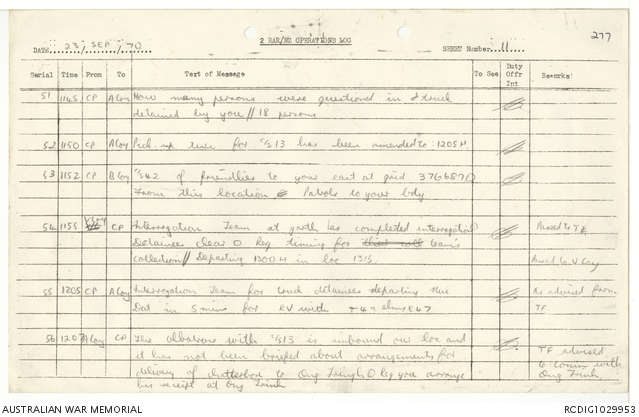 277
2 RAR/NZ OPERATIONS LOG
DATE 23/SEP/70
SHEET Number 11
Serial Time From To Text of Message To See Duty Offr Int Remarks
51 1145 CP A Coy How many persons were questioned in truck
detained by you // 18 persons
52 1150 CP A Coy Pick-up time for 513 has been amended to 1205H
53 1152 CP B Coy 542 of friendlies to your east at grid 376687
From this location Patrols to your bdy
54 1155 V Coy CP Interrogation Team at has completed interrogation
Detainees clear O Req timing for team's
collection // Departing 1300H in loc
Passed to TF
Passed to V Coy
55 1205 CP A Coy Interrogation Team for truck detainees departing Nui
Dat in 5 mins for RV with
As advised from
TF
56 1207 A Coy CP The albatross with 513 is inbound our loc and
it has not been briefed about arrangements for
delivery of to Ong Trinh O Req you arrange
his receipt at Ong Trinh
TF advised
to comm with
Ong Trinh
AUSTRALIAN WAR MEMORIAL
RCDIG1029953